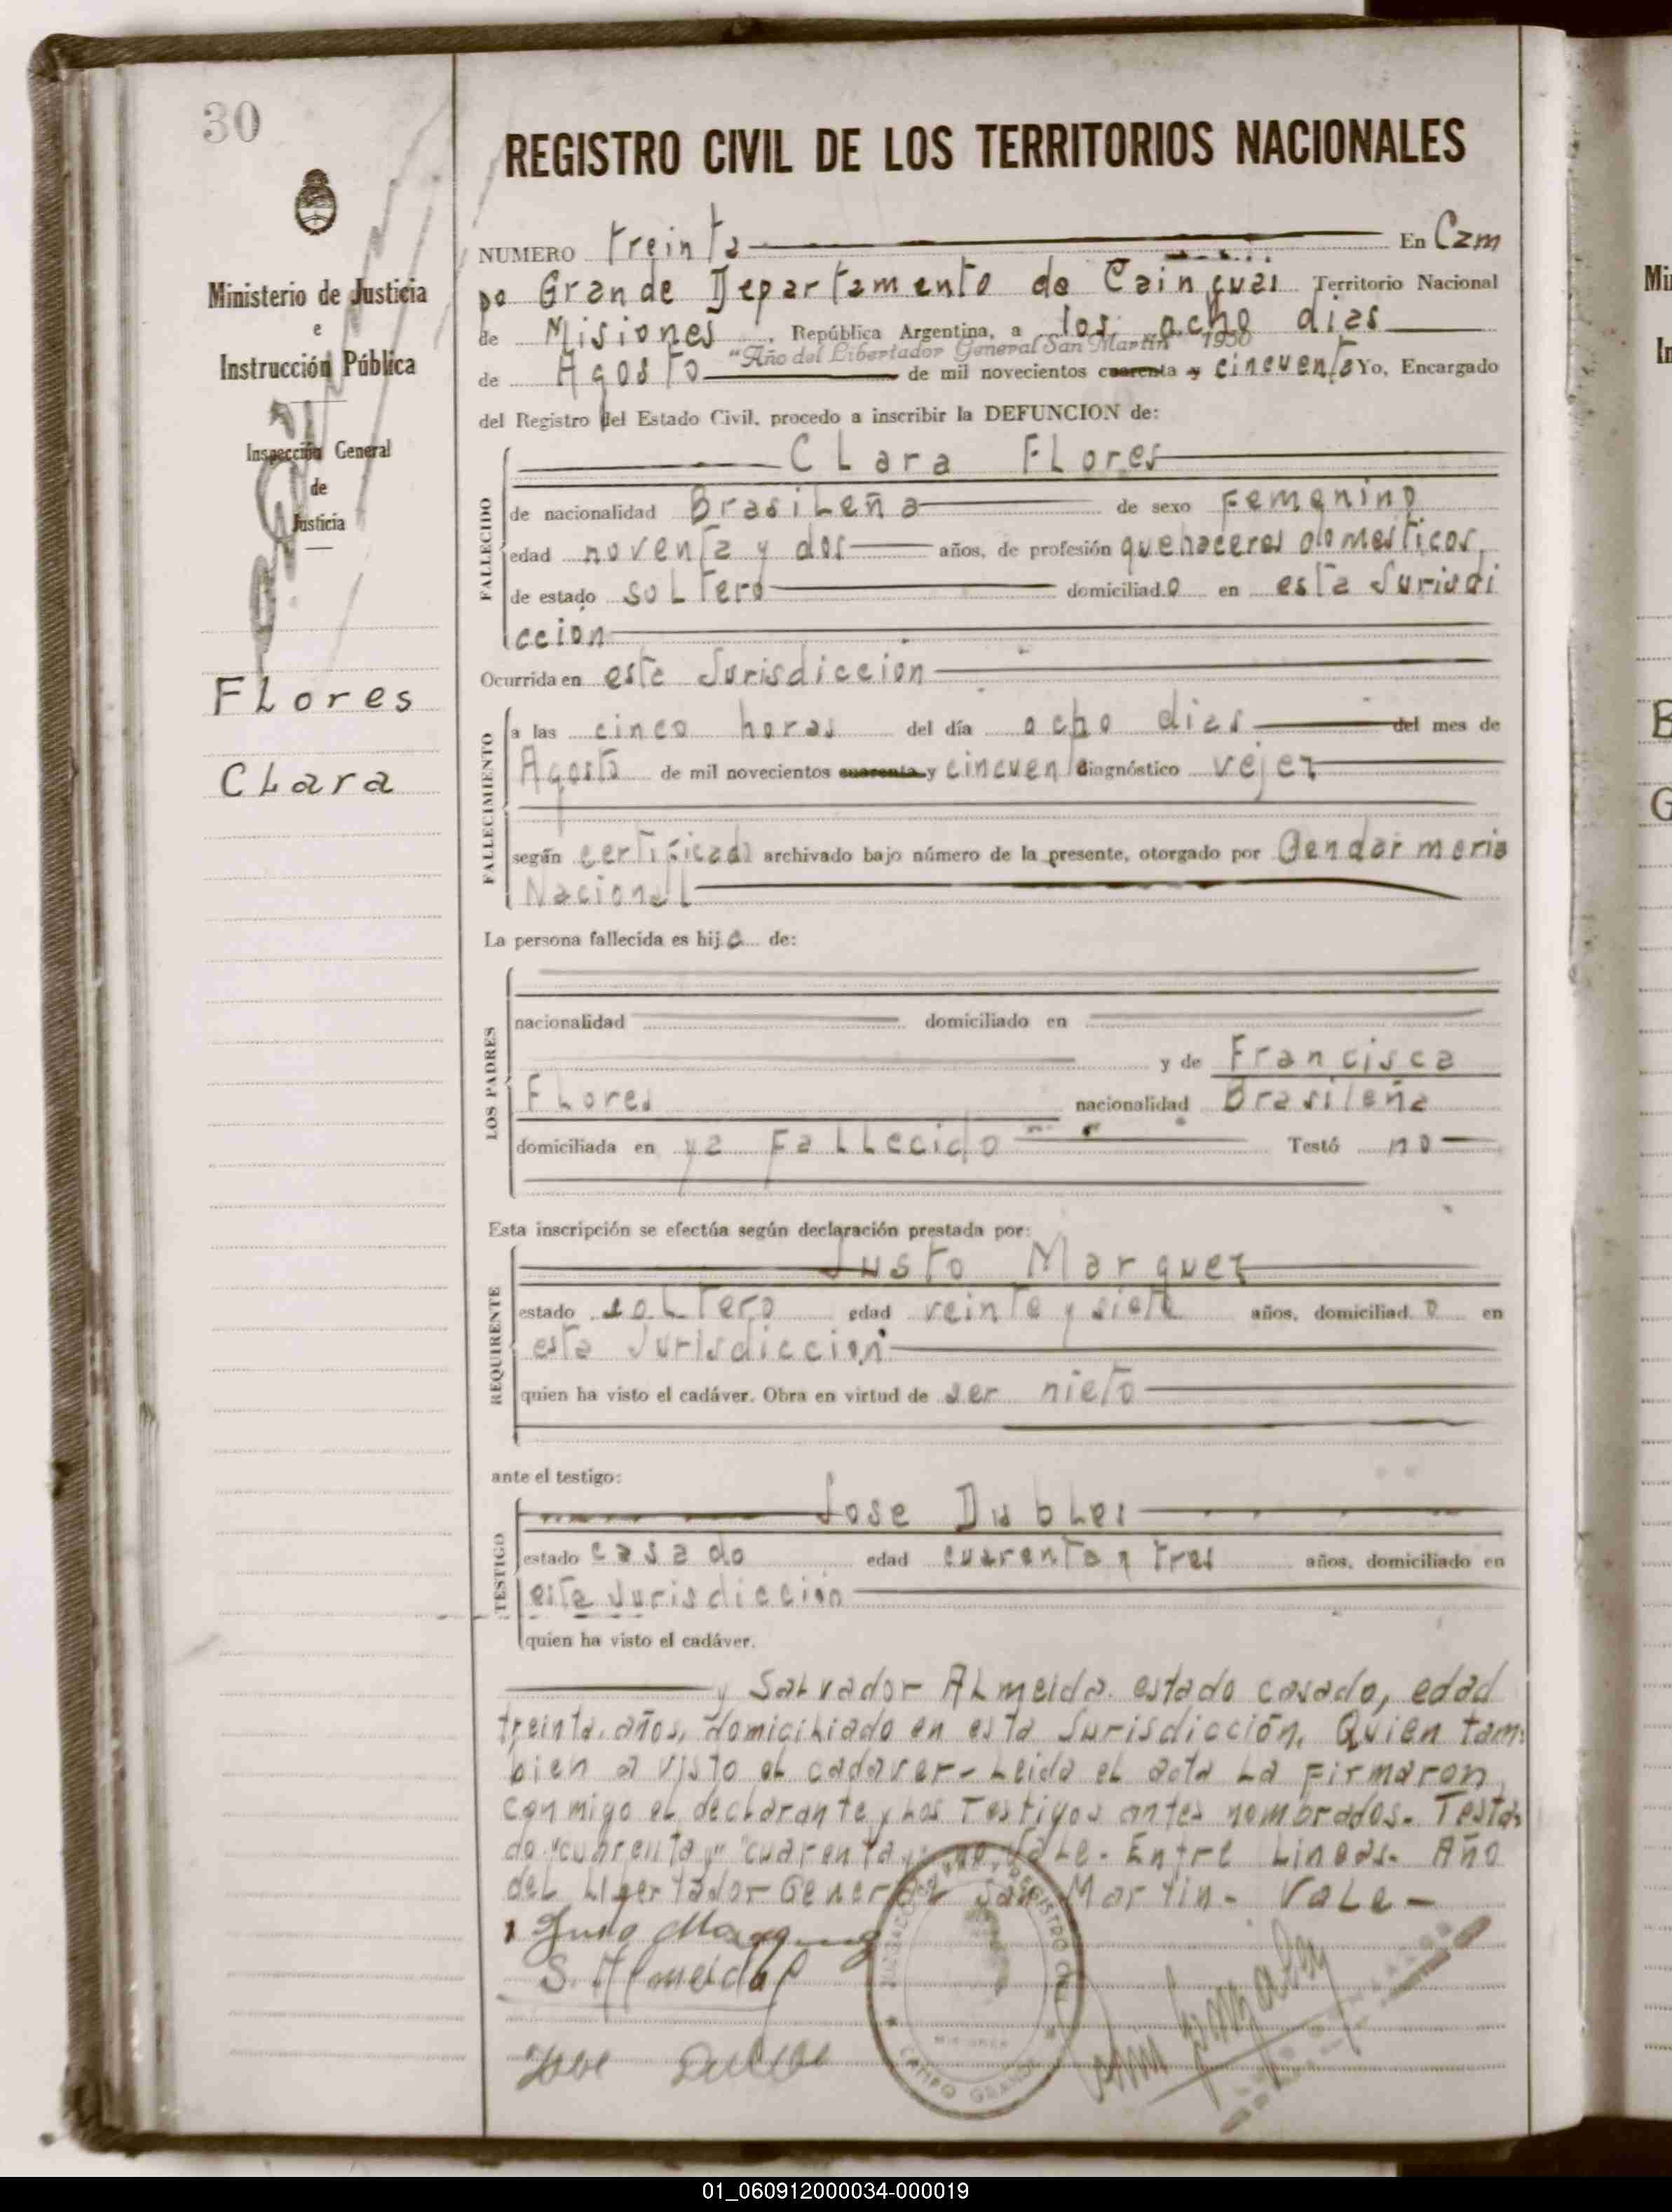 30
REGISTRO CIVIL DE LOS TERRITORIOS NACIONALES
Ministerio de Justicia
e
Instrucción Pública
Inspección General
de
Justicia
Flores
Clara
NUMERO treinta En Cam
po Grande Departamento de Cainguas Territorio Nacional
de Misiones, República Argentina, a los ocho dias
"Año del Libertador General San Martín" 1950
de Agosto de mil novecientos cuarenta y cincuenta Yo, Encargado
del Registro del Estado Civil, procedo a inscribir la DEFUNCION de:
FALLECIDO
Clara Flores
de nacionalidad Brasileña de sexo Femenino
edad noventa y dos años, de profesión quehaceres domesticos,
de estado soltero domiciliado en esta Jurisdi
ccion
Ocurrida en este Jurisdiccion
FALLECIMIENTO
a las cinco horas del día ocho dias del mes de
Agosto de mil novecientos cuarenta y cincuenta diagnóstico vejez
según certificado archivado bajo número de la presente, otorgado por Gendarmeria
Nacional
La persona fallecida es hija de:
LOS PADRES
nacionalidad domiciliado en
y de Francisca
Flores nacionalidad Brasileña
domiciliada en ya fallecido Testó no
Esta inscripción se efectúa según declaración prestada por:
REQUIRENTE
Justo Marquez
estado soltero edad veinte y siete años, domiciliado en
esta Jurisdiccion
quien ha visto el cadáver. Obra en virtud de ser nieto
ante el testigo:
TESTIGO
Jose Dubles
estado casado edad cuarenta y tres años, domiciliado en
esta Jurisdiccion
quien ha visto el cadáver.
y Salvador Almeida. estado casado, edad
treinta. años, domiciliado en esta Jurisdicción. Quien tam-
bien a visto el cadaver- Leida el acta La Firmaron
conmigo el declarante y Los Testigos antes nombrados. Testa
do "cuarenta y" "cuarenta" no Vale. Entre Lineas. Año
del Libertador General San Martin- Vale-
Justo Marquez
S. Almeida
Jose
REGISTRO CIVIL
MISIONES
CAMPO GRANDE
01_060912000034-000019